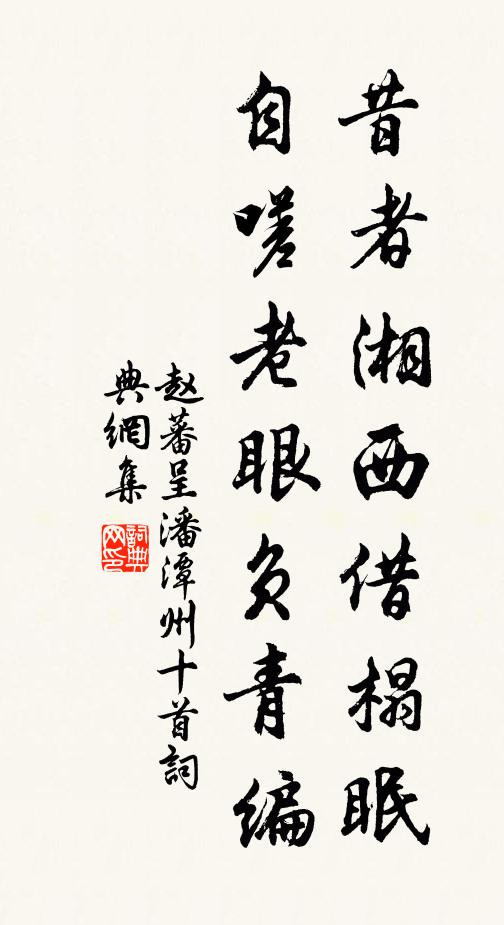 昔者湘西借榻眠
自嗟老眼负青编
赵蕃呈潘潭州十首詞
典網集
詞典网印